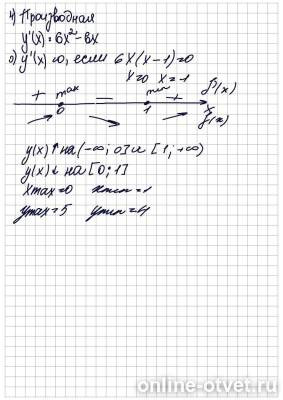 4) Производная
y'(x)=6x²-6x
0) y'(x)=0, если 6x(x-1)=0
x=0 x=1
+ max — min + f'(x)
0 1 x
f(x)
y(x) ↑ на (-∞; 0] и [1; +∞)
y(x) ↓ на [0; 1]
xmax=0 xmin=1
ymax=5 ymin=4
online-otvet.ru